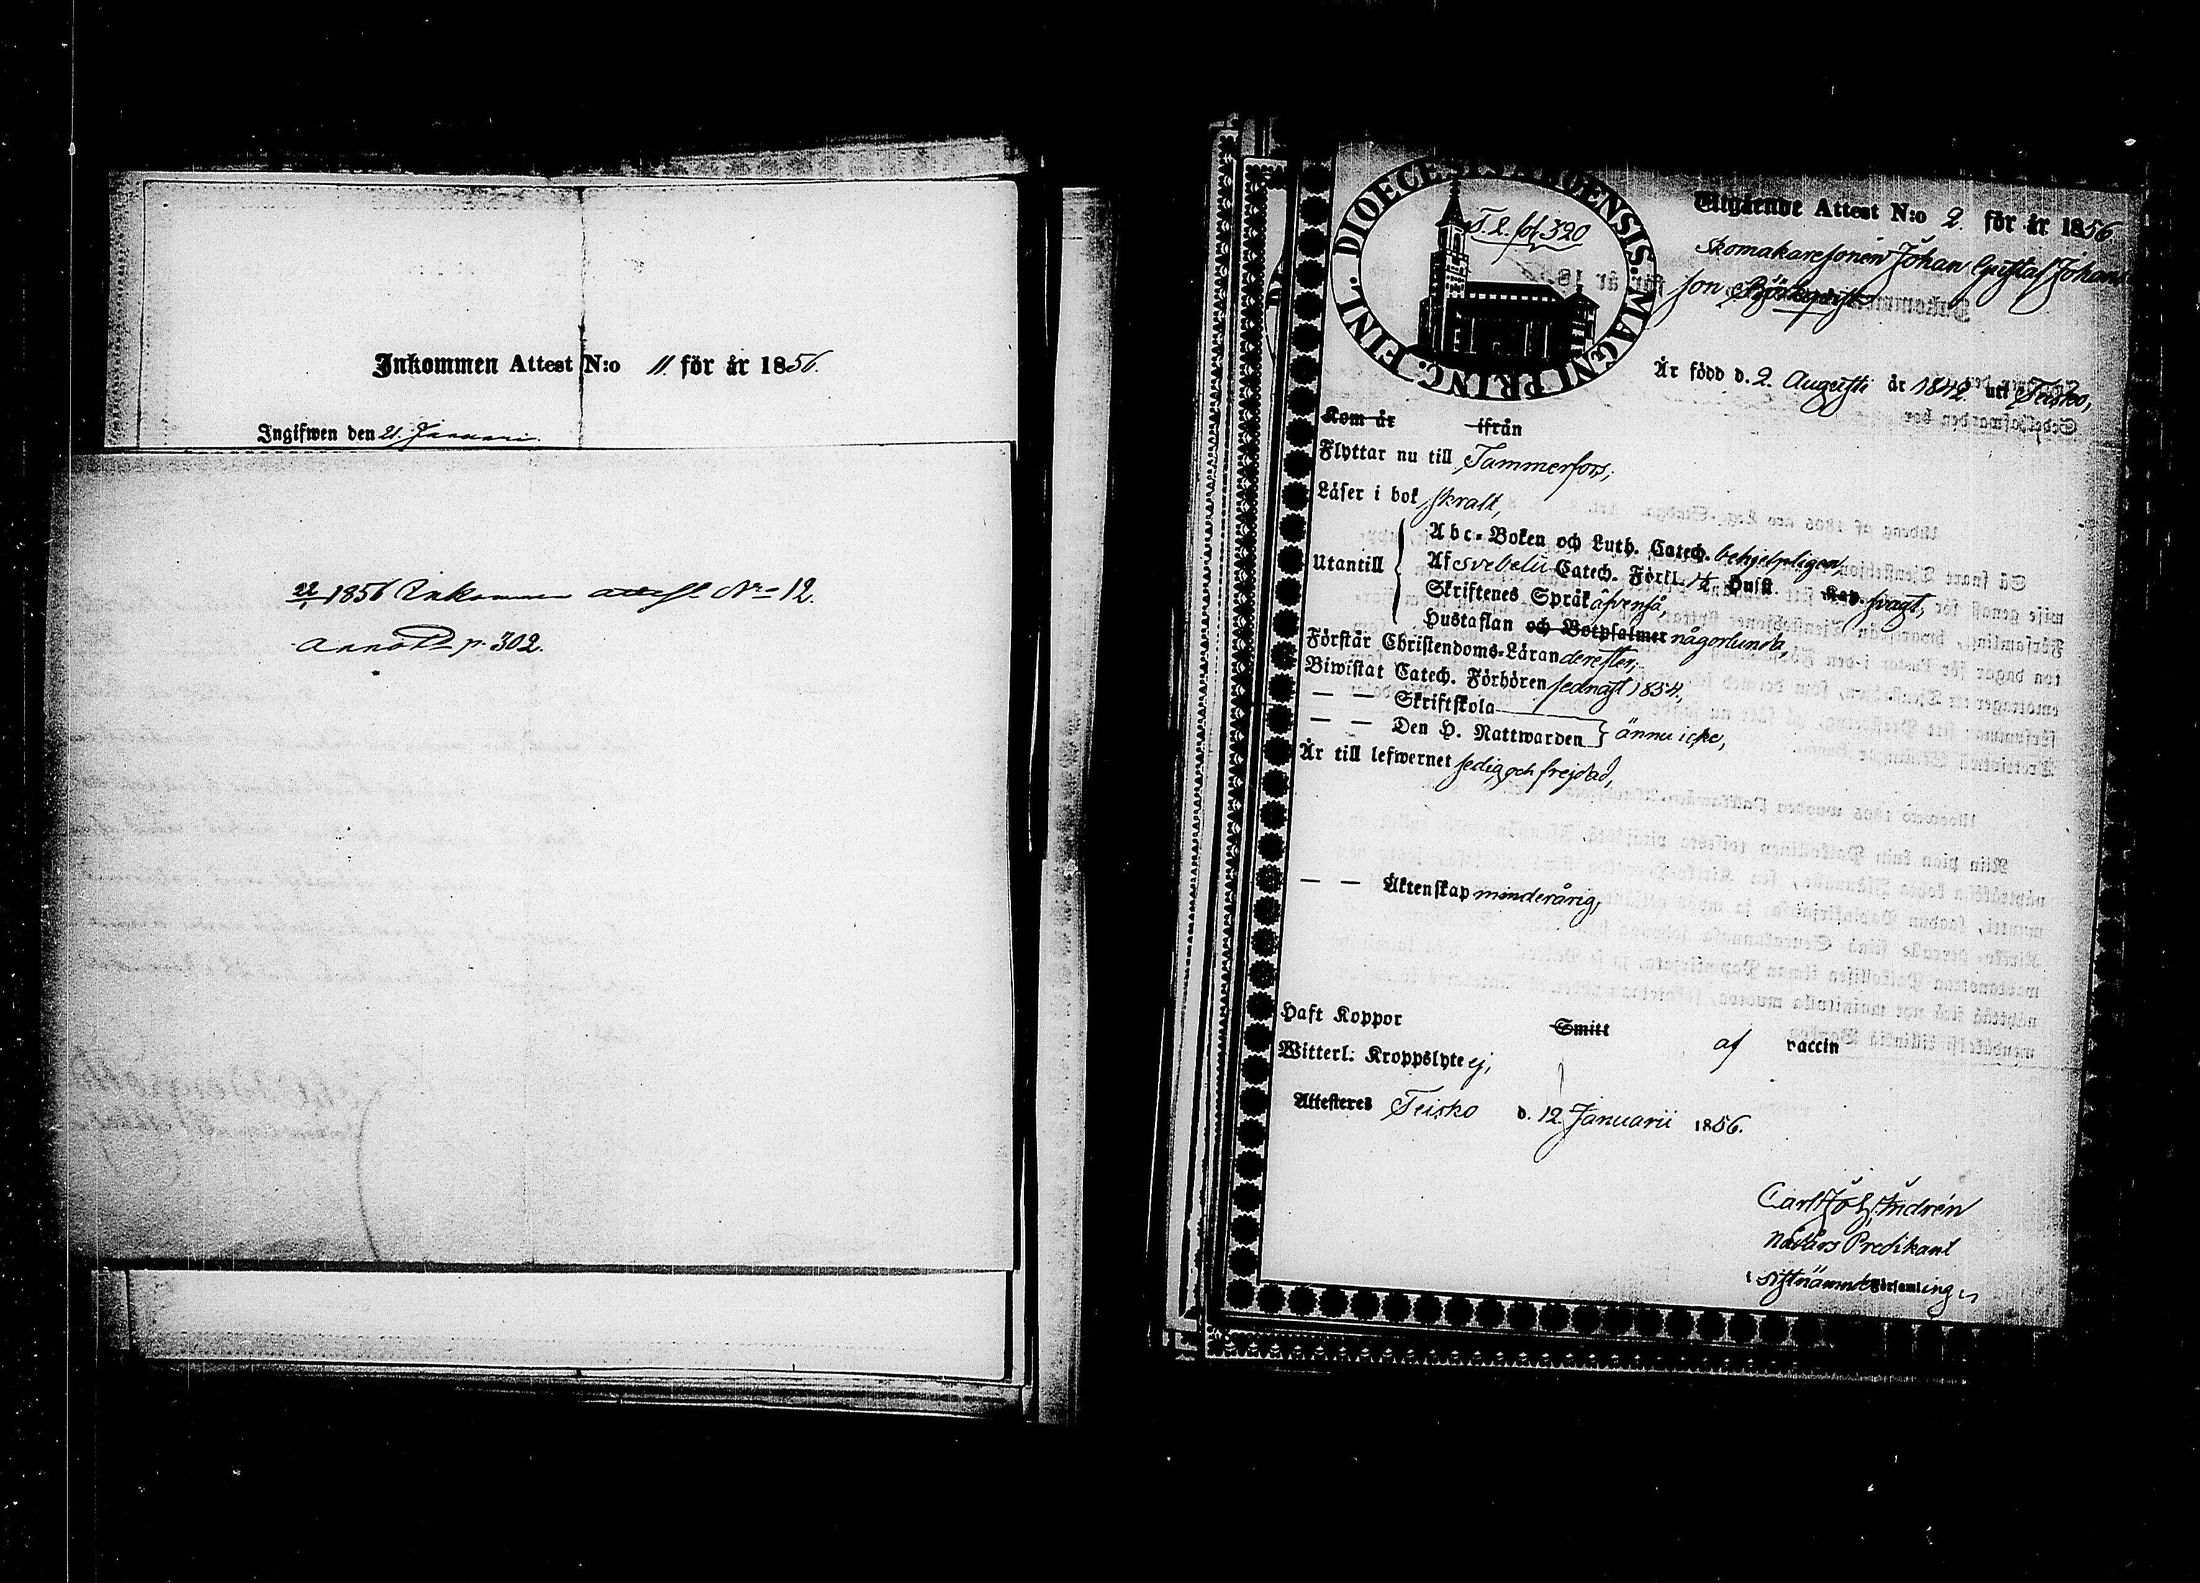 Inkommen Attest N:o 11. för år 1856.
Ingifwen den 21. Januari.
22/1 1856 Inkommen attest No 12.
Annot. p. 302.
DIOECESIS ABOENSIS. MAGNI PRINC. FINL.
T. 2. fol 320
Utgående Attest N:o 2. för år 1856
Skomakaresonen Johan Gustaf Johans
son
Är född d. 2. Augusti år 1842 uti Teisko,
Kom år ifrån
Flyttar nu till Tammerfors,
Läser i bok skralt,
Utantill
Abc-Boken och Luth. Catech. behjelpligen,
Afsvebelii Catech. Förkl. 1/2 Husst. Kap. svagt,
Skriftenes Språk äfvenså,
Hustaflan och Botpsalmer någorlunda,
Förstår Christendoms-Läran derefter,
Biwistat Catech. Förhören sednast 1854,
— — Skriftskola
— — Den H. Nattwarden ännu icke,
Är till lefwernet sedig och frejdad,
— — Äktenskap minderårig,
Haft Koppor Smitt af vaccin
Witterl. Kroppslyte ej,
Attesteres Teisko d. 12 Januarii 1856.
Carl Joh. Andrén
Nådårs Predikant
i ofvannämnde Församling